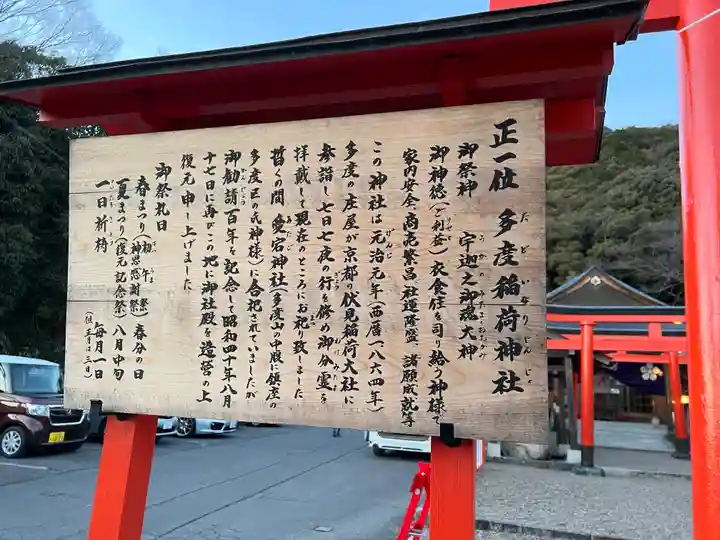 正一位 多度稲荷神社
たど いなりじんじゃ
御祭神 宇迦之御魂大神
うかのみたまおおかみ
御神徳(ご利益)衣食住を司り給う神様で
りやく
家内安全、商売繁昌、社運隆盛、諸願成就等
この神社は元治元年(西暦一八六四年)
げんじ
多度の庄屋が京都の伏見稲荷大社に
参詣し七日七夜の行を修め御分霊を
拝戴して現在のところにお祀り致しました
暫くの間 愛宕神社(多度山の中腹に鎮座の
あたご
多度区の氏神様)に合祀されていましたが
御勧請百年を記念して昭和四十年八月
かんじょう
十七日に再びこの地に御社殿を造営の上
復元申し上げました
御祭礼日
春まつり(初午祭 神恩感謝祭) 春分の日
夏まつり(復元記念祭)八月中旬
一日祈祷 毎月一日
(但正月は三日)